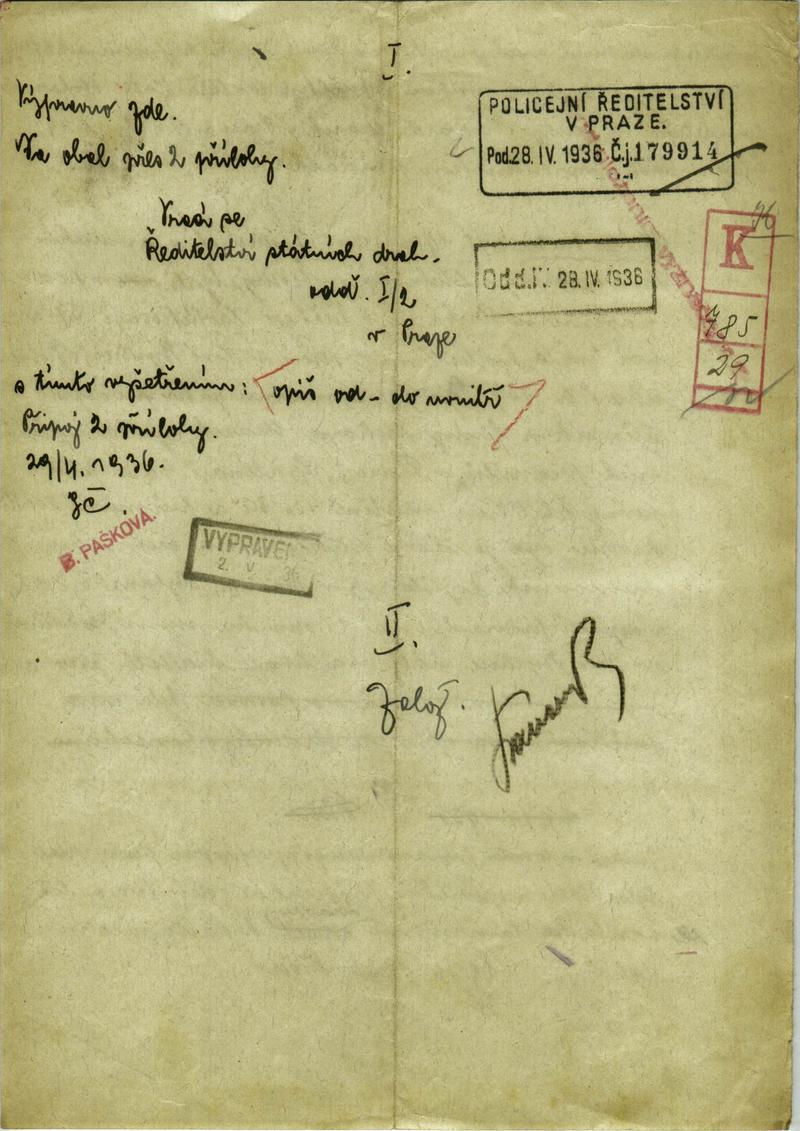 I.
Výpravno zde.
Na obal přes 2 přílohy.
POLICEJNÍ ŘEDITELSTVÍ
V PRAZE.
Pod. 28. IV. 1936 Č.j. 179914
Vrací se
Ředitelství státních drah.
odd. I/2
v Praze
Odd. 28. IV. 1936
K
785
29
s tímto vyšetřením: opiš od - do uvnitř
Připoj 2 přílohy.
29/4. 1936.
B. PAŠKOVÁ.
VYPRAVENO
2. V 36
II.
Založ.